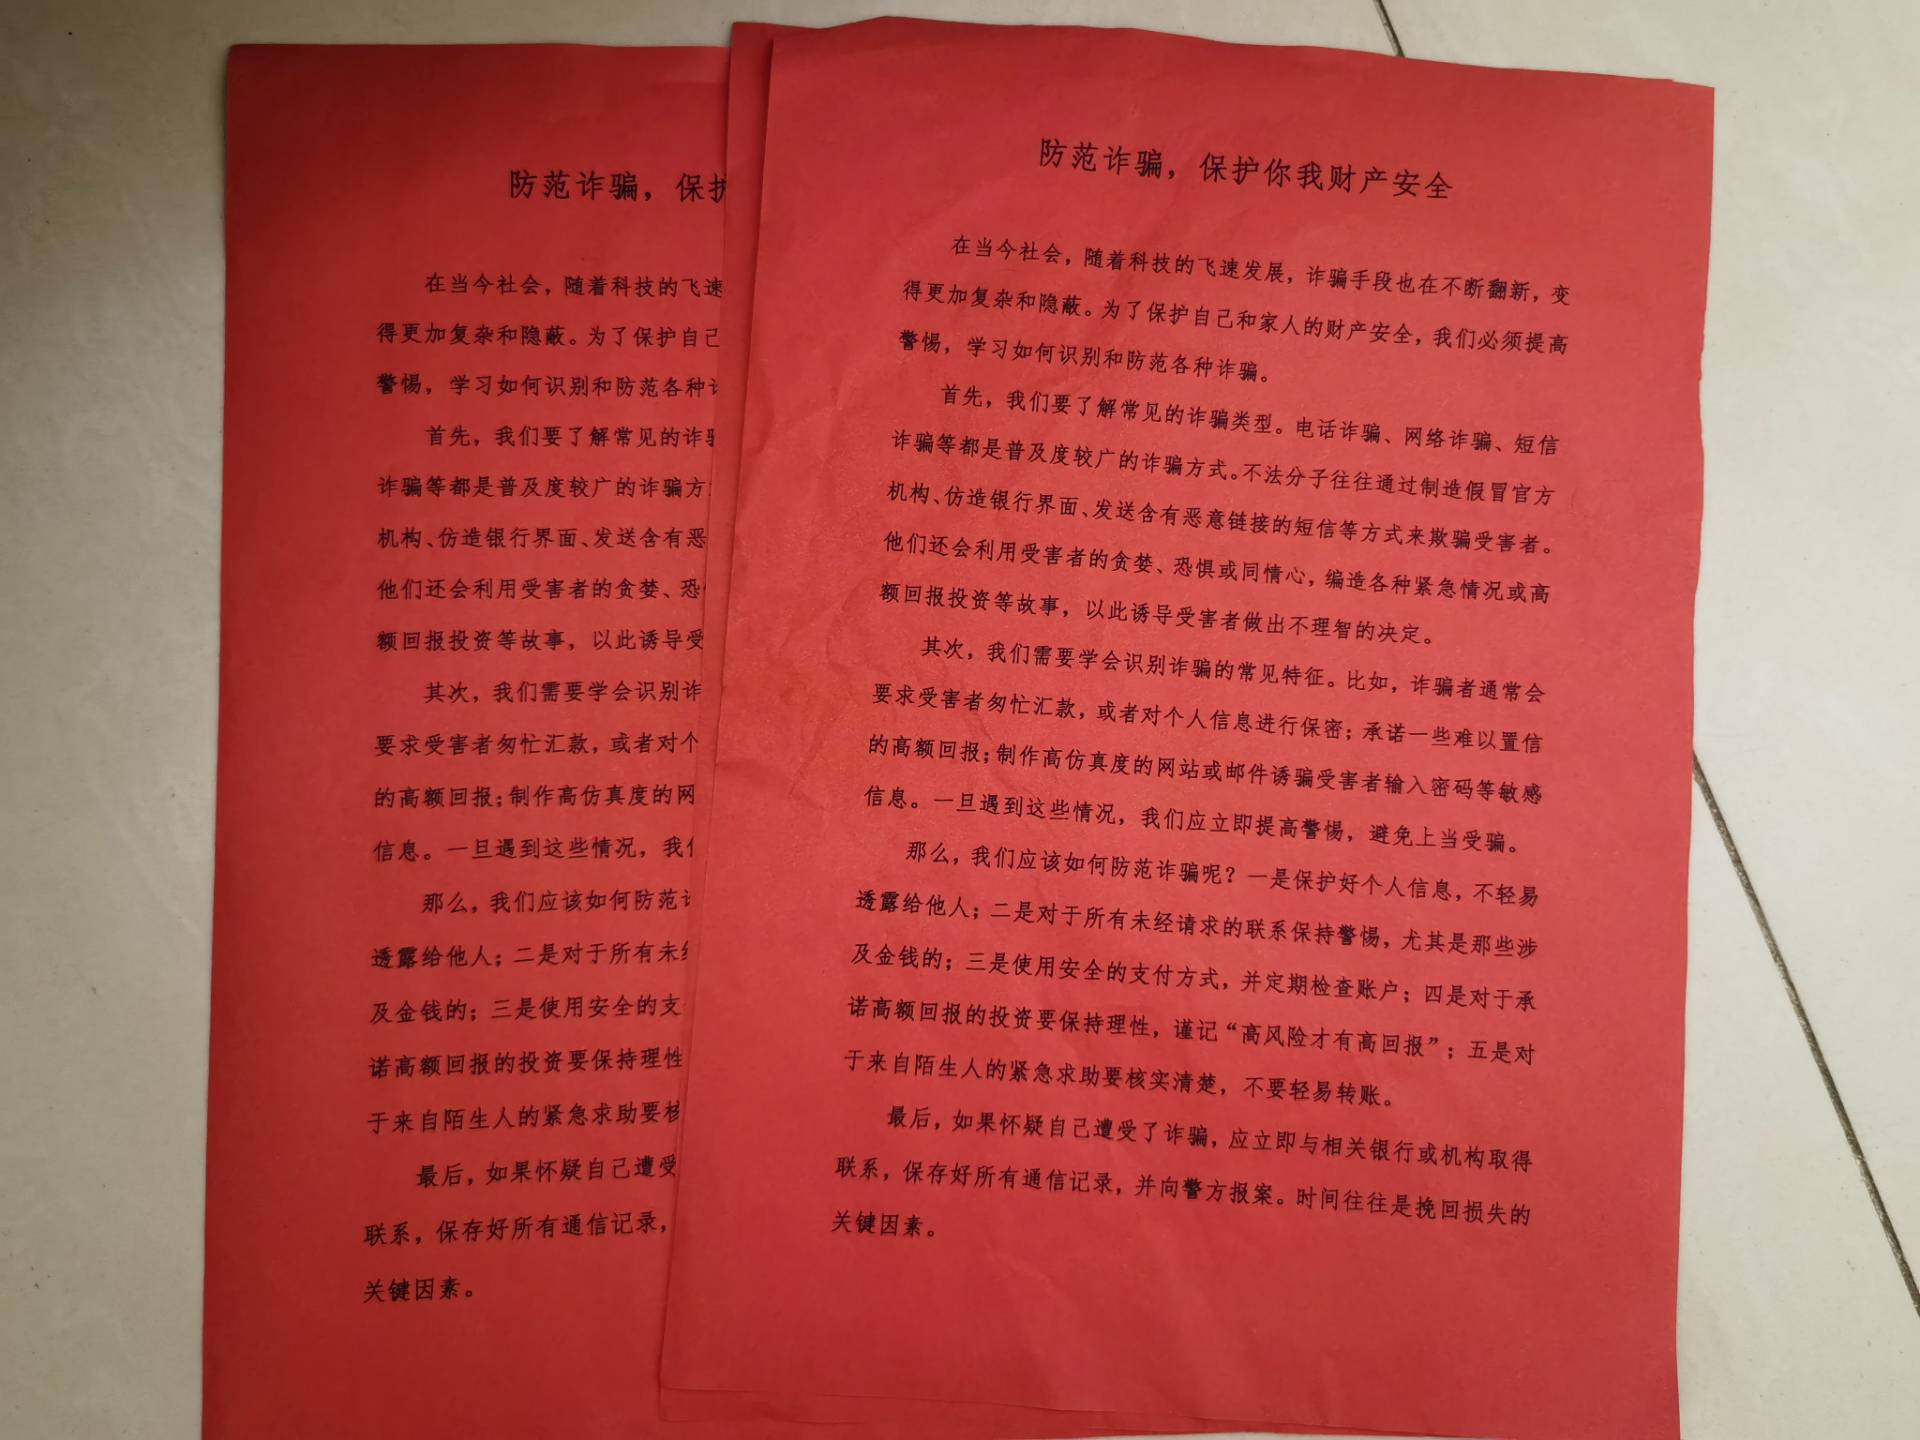 防范诈骗，保护
在当今社会，随着科技的飞速
得更加复杂和隐蔽。为了保护自己
警惕，学习如何识别和防范各种
首先，我们要了解常见的诈骗
诈骗等都是普及度较广的诈骗方
机构、仿造银行界面、发送含有恶
他们还会利用受害者的贪婪、恐
额回报投资等故事，以此诱导受
其次，我们需要学会识别诈
要求受害者匆忙汇款，或者对个
的高额回报；制作高仿真度的网
信息。一旦遇到这些情况，我们
那么，我们应该如何防范
透露给他人；二是对于所有未经
及金钱的；三是使用安全的支
诺高额回报的投资要保持理性
于来自陌生人的紧急求助要核
最后，如果怀疑自己遭受
联系，保存好所有通信记录，
关键因素。
防范诈骗，保护你我财产安全
在当今社会，随着科技的飞速发展，诈骗手段也在不断翻新，变
得更加复杂和隐蔽。为了保护自己和家人的财产安全，我们必须提高
警惕，学习如何识别和防范各种诈骗。
首先，我们要了解常见的诈骗类型。电话诈骗、网络诈骗、短信
诈骗等都是普及度较广的诈骗方式。不法分子往往通过制造假冒官方
机构、仿造银行界面、发送含有恶意链接的短信等方式来欺骗受害者。
他们还会利用受害者的贪婪、恐惧或同情心，编造各种紧急情况或高
额回报投资等故事，以此诱导受害者做出不理智的决定。
其次，我们需要学会识别诈骗的常见特征。比如，诈骗者通常会
要求受害者匆忙汇款，或者对个人信息进行保密；承诺一些难以置信
的高额回报；制作高仿真度的网站或邮件诱骗受害者输入密码等敏感
信息。一旦遇到这些情况，我们应立即提高警惕，避免上当受骗。
那么，我们应该如何防范诈骗呢？一是保护好个人信息，不轻易
透露给他人；二是对于所有未经请求的联系保持警惕，尤其是那些涉
及金钱的；三是使用安全的支付方式，并定期检查账户；四是对于承
诺高额回报的投资要保持理性，谨记“高风险才有高回报”；五是对
于来自陌生人的紧急求助要核实清楚，不要轻易转账。
最后，如果怀疑自己遭受了诈骗，应立即与相关银行或机构取得
联系，保存好所有通信记录，并向警方报案。时间往往是挽回损失的
关键因素。